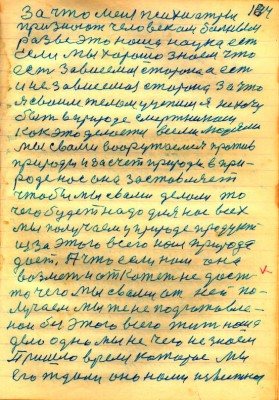 184
За что меня психиатры
признают человеком больным
Разве это наша наука ест
если мы хорошо знаем что
ест зависемая сторона ест
и не зависемая сторона За то
я своим телом учения не хочу
быт в природе смертником
Как это делается всеми людями
мы свами вооружаемся против
природы и за счет природы в при-
роде нас она заставляет
чтобы мы свами делали то
чего будет надо для нас всех
мы получаем у природе продукт
из за этого всего нам природа
дает. А что если нам она
возмет и откажет не даст
то чего мы свами от ней по-
лучаем мы же не подготовле-
ны без этого всего жит наше
дело одно мы не чего не знаем
Пришло время которое мы
его ждали оно нами